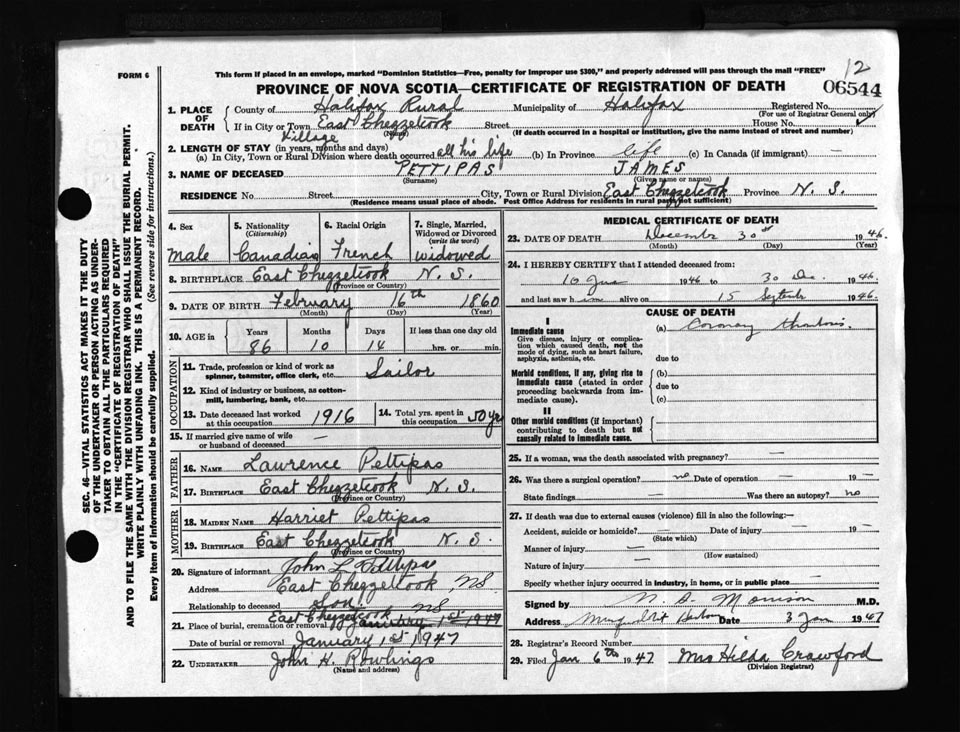 12
FORM 6
This form if placed in an envelope, marked "Dominion Statistics—Free, penalty for improper use $300," and properly addressed will pass through the mail "FREE"
PROVINCE OF NOVA SCOTIA—CERTIFICATE OF REGISTRATION OF DEATH 06544
1. PLACE OF DEATH County of Halifax Rural Municipality of Halifax Registered No.
(For use of Registrar General only)
If in City or Town East Chezzetcook Street House No.
Village (Name) (If death occurred in a hospital or institution, give the name instead of street and number)
2. LENGTH OF STAY (in years, months and days)
(a) In City, Town or Rural Division where death occurred all his life (b) In Province life (c) In Canada (if immigrant) —
3. NAME OF DECEASED PETTIPAS JAMES
(Surname) (Given name or names)
RESIDENCE No. Street City, Town or Rural Division East Chezzetcook Province N. S.
(Residence means usual place of abode. Post Office Address for residents in rural parts not sufficient)
4. Sex 5. Nationality 6. Racial Origin 7. Single, Married, Widowed or Divorced
(Citizenship) (write the word)
male Canadian French widowed
8. BIRTHPLACE East Chezzetcook N. S.
(Province or Country)
9. DATE OF BIRTH February 16th 1860
(Month) (Day) (Year)
10. AGE in Years Months Days If less than one day old
86 10 14 hrs. or min.
OCCUPATION
11. Trade, profession or kind of work as spinner, teamster, office clerk, etc. Sailor
12. Kind of industry or business, as cotton-mill, lumbering, bank, etc.
13. Date deceased last worked at this occupation 1916 14. Total yrs. spent in this occupation 50 yrs
15. If married give name of wife or husband of deceased —
FATHER
16. NAME Lawrence Pettipas
17. BIRTHPLACE East Chezzetcook N. S.
(Province or Country)
MOTHER
18. MAIDEN NAME Harriet Pettipas
19. BIRTHPLACE East Chezzetcook N. S.
(Province or Country)
20. Signature of informant John L Pettipas
Address East Chezzetcook, NS
Relationship to deceased Son
21. Place of burial, cremation or removal East Chezzetcook NS January 1st 1947
Date of burial or removal January 1st 1947
22. UNDERTAKER John H. Rowlings
(Name and address)
MEDICAL CERTIFICATE OF DEATH
23. DATE OF DEATH December 30th 1946.
(Month) (Day) (Year)
24. I HEREBY CERTIFY that I attended deceased from:
10 1946 to 30 De. 1946.
and last saw him alive on 15 September 1946.
CAUSE OF DEATH
I
Immediate cause (a) Coronary thrombosis.
Give disease, injury or complication which caused death, not the mode of dying, such as heart failure, asphyxia, asthenia, etc.
due to
Morbid conditions, if any, giving rise to immediate cause (stated in order proceeding backwards from immediate cause).
(b)
due to
(c)
II
Other morbid conditions (if important) contributing to death but not causally related to immediate cause.
25. If a woman, was the death associated with pregnancy? —
26. Was there a surgical operation? no Date of operation — 19 —
State findings — Was there an autopsy? no
27. If death was due to external causes (violence) fill in also the following:—
Accident, suicide or homicide? — Date of injury — 19 —
(State which)
Manner of injury —
(How sustained)
Nature of injury —
Specify whether injury occurred in industry, in home, or in public place —
Signed by M.D.
Address Date 3 Jan 1947
28. Registrar's Record Number
29. Filed Jan 6th 1947 Mrs Hilda Crawford
(Division Registrar)
SEC. 46—VITAL STATISTICS ACT MAKES IT THE DUTY
OF THE UNDERTAKER OR PERSON ACTING AS UNDER-
TAKER TO OBTAIN ALL THE PARTICULARS REQUIRED
IN THE "CERTIFICATE OF REGISTRATION OF DEATH"
AND TO FILE THE SAME WITH THE DIVISION REGISTRAR WHO SHALL ISSUE THE BURIAL PERMIT.
WRITE PLAINLY WITH UNFADING INK. THIS IS A PERMANENT RECORD.
Every item of information should be carefully supplied. (See reverse side for instructions.)